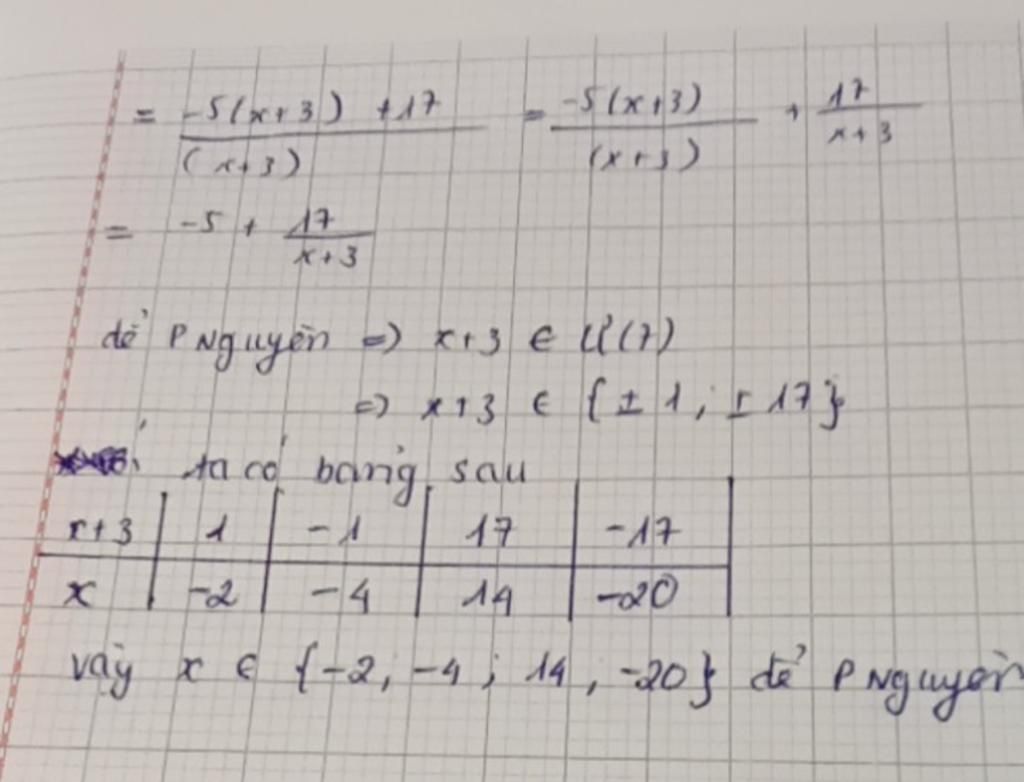 = -5(x+3) +17 / (x+3) = -5(x+3) / (x+3) + 17 / x+3
= -5 + 17 / x+3
để P Nguyên => x+3 ∈ Ư(17)
=> x+3 ∈ {±1; ±17}
ta có bảng sau
x+3 | 1 | -1 | 17 | -17
x | -2 | -4 | 14 | -20
vậy x ∈ {-2, -4; 14, -20} để P Nguyên